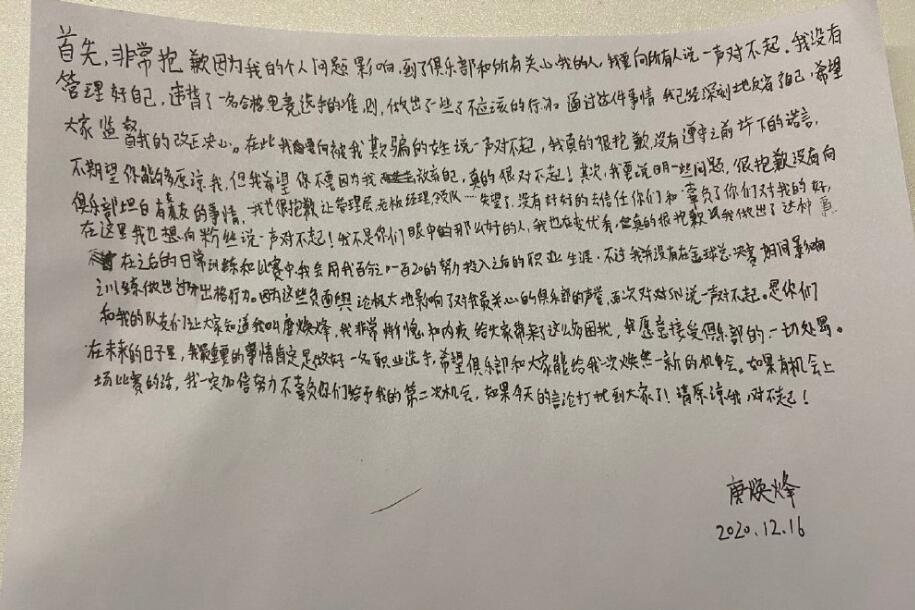 首先,非常抱歉因为我的个人问题影响到了俱乐部和所有关心我的人,我要向所有人说一声对不起。我没有
管理好自己,违背了一名合格电竞选手的准则,做出了一些了不应该的行为。通过这件事情我已经深刻地反省了自己,希望
大家监督我的改正决心。在此我要向被我欺骗的女生说一声对不起,我真的很抱歉,没有遵守之前许下的诺言,
不期望你能够原谅我,但我希望你不要因为我放弃自己,真的很对不起!其次,我要说明一些问题,很抱歉没有向
俱乐部坦白有素友的事情,我也很抱歉让管理层,老板经理领队……失望了,没有好好的去信任你们和辜负了你们对我的好,
在这里我也想向粉丝说一声对不起!我不是你们眼中的那么好的人,我也在变优秀,真的很抱歉我做出了这种事
在之后的日常训练和比赛中,我会用我百分之一百20的努力投入之后的职业生涯,不过我并没有在全球总决赛期间影响
训练做出过分出格行为。因为这些负面舆论极大地影响了对我最关心的俱乐部的声誉,再次对对SN说一声对不起。是你们
和我的队友们让大家知道我叫唐焕烽,我非常惭愧和内疚给大家带来了这么多困扰,我愿意接受俱乐部的一切处罚。
在未来的日子里,我最重要的事情肯定是做好一名职业选手,希望俱乐部和大家能给我一次焕然一新的机会。如果有机会上
场比赛的话,我一定加倍努力不辜负你们给予我的第二次机会,如果今天的言论打扰到大家了!请原谅我,对不起!
唐焕烽
2020.12.16